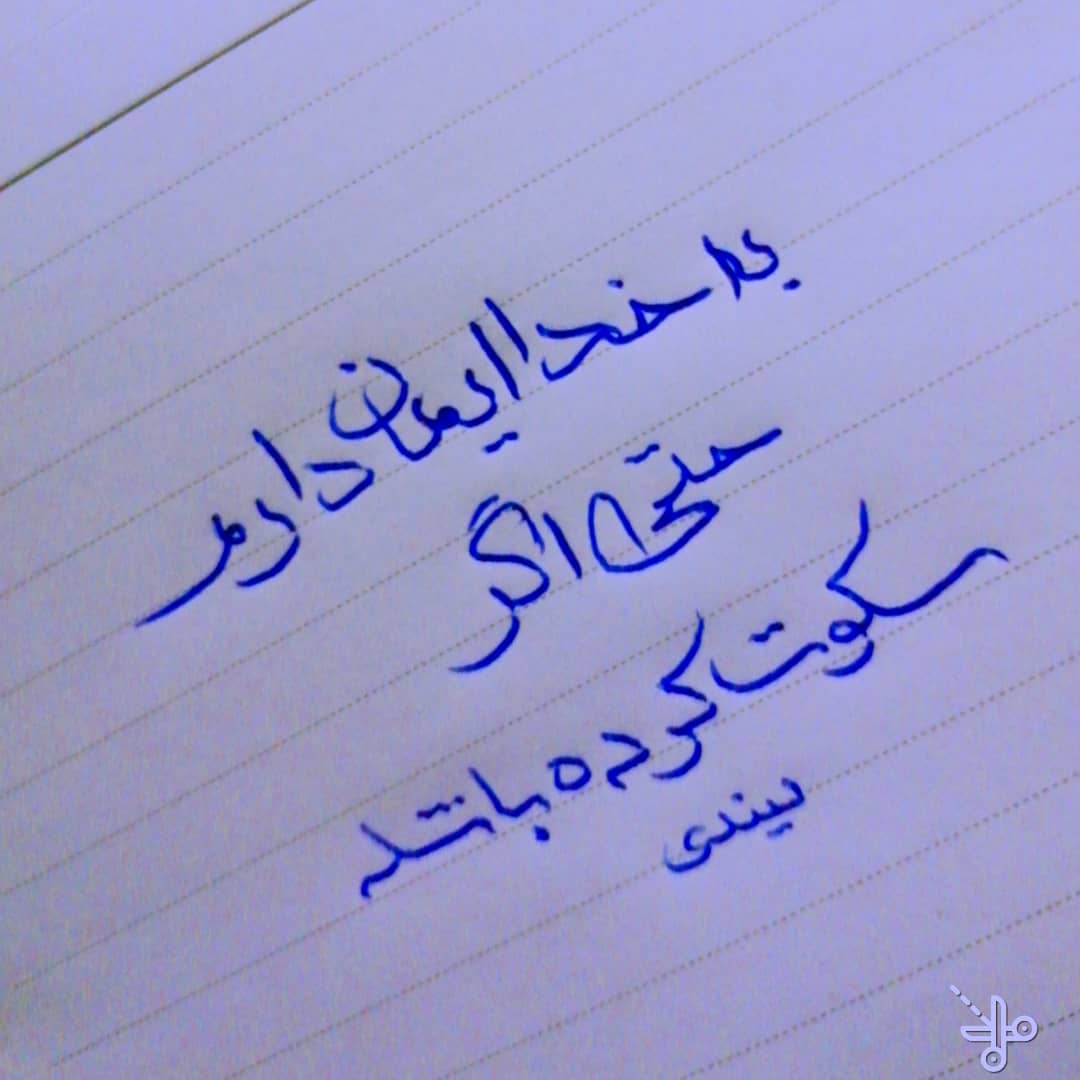 به خدا ایمان دارم
حتی اگر
سکوت کرده باشد